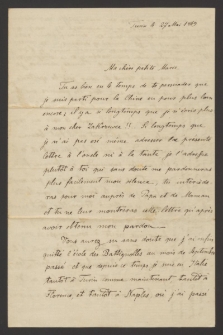 Turin le 27 Mai 1889
Ma chère petite Mimi
Tu as bien eu le temps de te demander que
je suis parti pour la Chine ou pour plus loin
encore; il y a si longtemps que je n'ai vu plus
à mon cher Intérieur!! Si longtemps que
je n'ai pas osé même adresser la présente
lettre à l'oncle ni à la tante, je t'adresse
plutôt à toi qui sans doute me pardonneras
plus facilement mon silence; tu intercède
ras pour moi auprès de Papa et de Maman
et tu ne leur montreras cette lettre qu'après
avoir obtenu mon pardon.
Vous savez sans doute que j'ai
quitté l'école des Batignolles au mois de Septembre
passé et que depuis ce temps je suis en Italie
tantôt à Turin comme maintenant, tantôt à
Rome, et tantôt à Naples, où j'ai passé